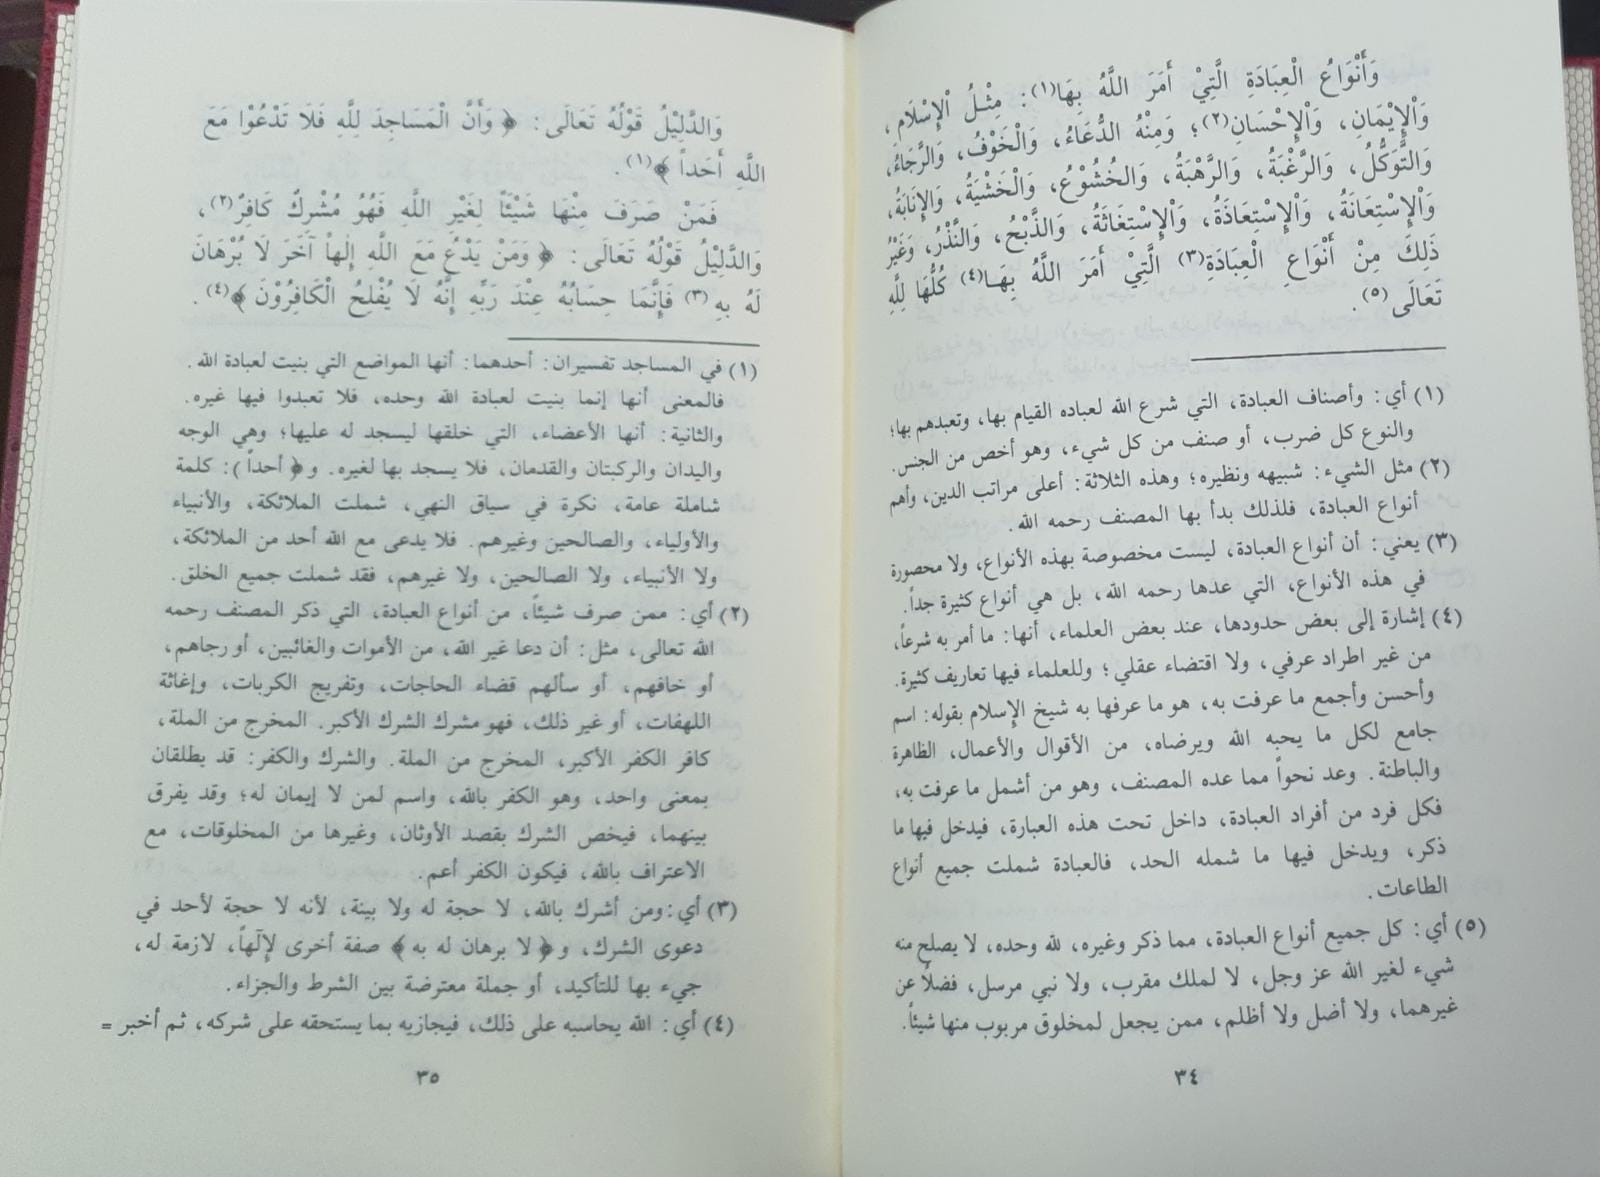 وَأَنْوَاعُ الْعِبَادَةِ الَّتِيْ أَمَرَ اللَّهُ بِهَا(١): مِثْلُ الْإِسْلَامِ،
وَالْإِيْمَانِ، وَالْإِحْسَانِ(٢)؛ وَمِنْهُ الدُّعَاءُ، وَالْخَوْفُ، وَالرَّجَاءُ،
وَالتَّوَكُّلُ، وَالرَّغْبَةُ، وَالرَّهْبَةُ، وَالخُشُوْعُ، وَالْخَشْيَةُ، وَالإِنَابَةُ،
وَالْإِسْتِعَانَةُ، وَالْإِسْتِعَاذَةُ، وَالْإِسْتِغَاثَةُ، وَالذَّبْحُ، وَالنَّذْرُ، وَغَيْرُ
ذَلِكَ مِنْ أَنْوَاعِ الْعِبَادَةِ(٣) الَّتِيْ أَمَرَ اللَّهُ بِهَـا(٤) كُلُّهَا لِلَّهِ
تَعَالَى(٥).
(١) أي: وأصناف العبادة، التي شرع الله لعباده القيام بها، وتعبدهم بها؛
والنوع كل ضرب، أو صنف من كل شيء، وهو أخص من الجنس.
(٢) مثل الشيء: شبيهه ونظيره؛ وهذه الثلاثة: أعلى مراتب الدين، وأهم
أنواع العبادة، فلذلك بدأ بها المصنف رحمه الله.
(٣) يعني: أن أنواع العبادة، ليست مخصوصة بهذه الأنواع، ولا محصورة
في هذه الأنواع، التي عدها رحمه الله، بل هي أنواع كثيرة جداً.
(٤) إشارة إلى بعض حدودها، عند بعض العلماء، أنها: ما أمر به شرعاً،
من غير اطراد عرفي، ولا اقتضاء عقلي؛ وللعلماء فيها تعاريف كثيرة.
وأحسن وأجمع ما عرفت به، هو ما عرفها به شيخ الإسلام بقوله: اسم
جامع لكل ما يحبه الله ويرضاه، من الأقوال والأعمال، الظاهرة
والباطنة. وعد نحواً مما عده المصنف، وهو من أشمل ما عرفت به،
فكل فرد من أفراد العبادة، داخل تحت هذه العبارة، فيدخل فيها ما
ذكر، ويدخل فيها ما شمله الحد، فالعبادة شملت جميع أنواع
الطاعات.
(٥) أي: كل جميع أنواع العبادة، مما ذكر وغيره، لله وحده، لا يصلح منه
شيء لغير الله عز وجل، لا لملك مقرب، ولا نبي مرسل، فضلاً عن
غيرهما، ولا أضل ولا أظلم، ممن يجعل لمخلوق مربوب منها شيئاً.
٣٤
وَالدَّلِيْلُ قَوْلُهُ تَعَالَى: ﴿ وَأَنَّ الْمَسَاجِدَ لِلَّهِ فَلَا تَدْعُوْا مَعَ
اللَّهِ أَحَداً ﴾(١).
فَمَنْ صَرَفَ مِنْهَا شَيْئاً لِغَيْرِ اللَّهِ فَهُوَ مُشْرِكٌ كَافِرٌ(٢)،
وَالدَّلِيْلُ قَوْلُهُ تَعَالَى: ﴿ وَمَنْ يَدْعُ مَعَ اللَّهِ إِلٰهاً آخَرَ لَا بُرْهَانَ
لَهُ بِهِ(٣) فَإِنَّمَا حِسَابُهُ عِنْدَ رَبِّهِ إِنَّهُ لَا يُفْلِحُ الْكَافِرُوْنَ ﴾(٤).
(١) في المساجد تفسيران: أحدهما: أنها المواضع التي بنيت لعبادة الله.
فالمعنى أنها إنما بنيت لعبادة الله وحده، فلا تعبدوا فيها غيره.
والثانية: أنها الأعضاء، التي خلقها ليسجد له عليها؛ وهي الوجه
واليدان والركبتان والقدمان، فلا يسجد بها لغيره. و﴿ أحداً ﴾: كلمة
شاملة عامة، نكرة في سياق النهي، شملت الملائكة، والأنبياء
والأولياء، والصالحين وغيرهم. فلا يدعى مع الله أحد من الملائكة،
ولا الأنبياء، ولا الصالحين، ولا غيرهم، فقد شملت جميع الخلق.
(٢) أي: ممن صرف شيئاً، من أنواع العبادة، التي ذكر المصنف رحمه
الله تعالى، مثل: أن دعا غير الله، من الأموات والغائبين، أو رجاهم،
أو خافهم، أو سألهم قضاء الحاجات، وتفريج الكربات، وإغاثة
اللهفات، أو غير ذلك، فهو مشرك الشرك الأكبر. المخرج من الملة،
كافر الكفر الأكبر، المخرج من الملة. والشرك والكفر: قد يطلقان
بمعنى واحد، وهو الكفر بالله، واسم لمن لا إيمان له؛ وقد يفرق
بينهما، فيخص الشرك بقصد الأوثان، وغيرها من المخلوقات، مع
الاعتراف بالله، فيكون الكفر أعم.
(٣) أي: ومن أشرك بالله، لا حجة له ولا بينة، لأنه لا حجة لأحد في
دعوى الشرك، و﴿ لا برهان له به ﴾ صفة أخرى لإلٓهاً، لازمة له،
جيء بها للتأكيد، أو جملة معترضة بين الشرط والجزاء.
(٤) أي: الله يحاسبه على ذلك، فيجازيه بما يستحقه على شركه، ثم أخبر =
٣٥